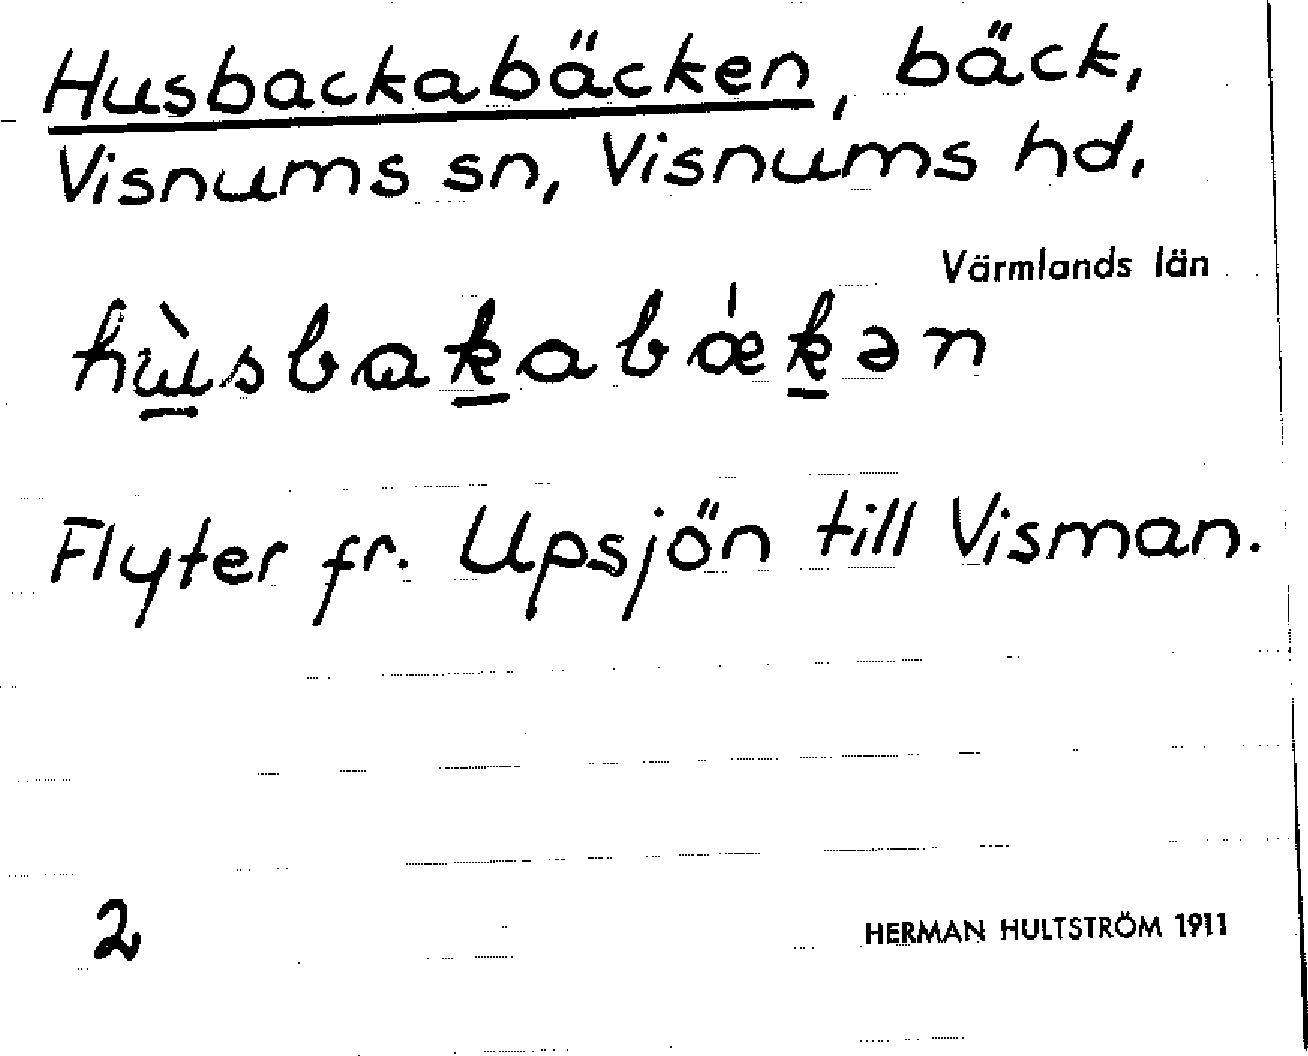 Husbackabäcken, bäck,
Visnums sn, Visnums hd,
Värmlands län
hù̱sbak̲abǽk̲ən
Flyter fr. Upsjön till Visman.
2
HERMAN HULTSTRÖM 1911